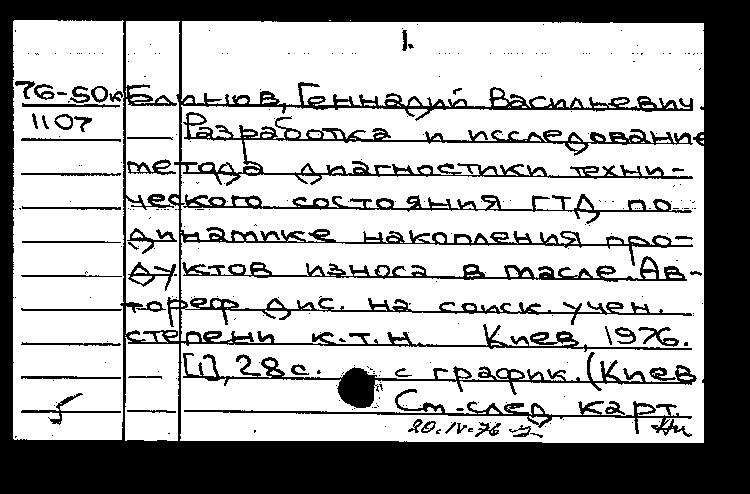 1.
76-50к Блинов, Геннадий Васильевич.
1107 Разработка и исследование
метода диагностики техни-
ческого состояния ГТД по
динамике накопления про-
дуктов износа в масле. Ав-
тореф. дис. на соиск. учен.
степени к.т.н. Киев, 1976.
[1], 28 с. с график. (Киев.
См. след. карт.
20.IV-76